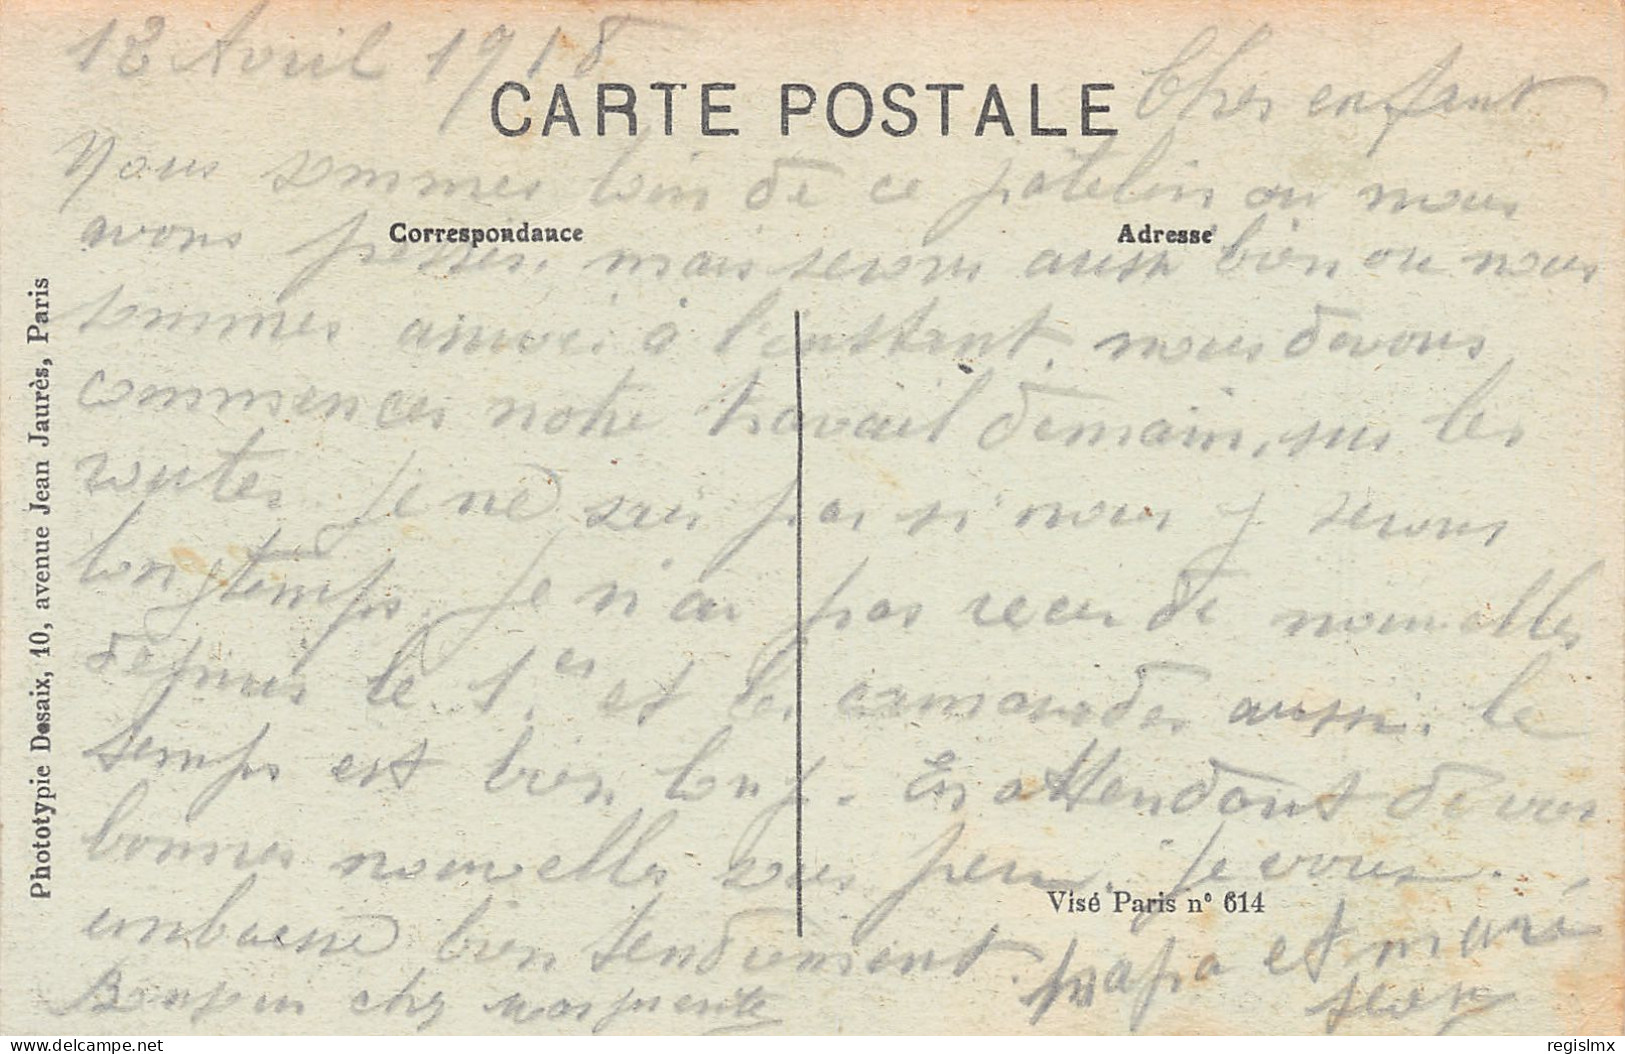 12 Avril 1918
CARTE POSTALE
Cher enfant
Nous sommes loin de ce patelin ou nous
avons passer, mais serons aussi bien ou nous
Correspondance
Adresse
sommes arrivé à l'instant, nous devons
commencer notre travail demain, sur les
routes. Je ne sais pas si nous y serons
longtemps. Je n'ai pas recu de nouvelles
depuis le 1er et les camarades aussi. le
temps est bien long. En attendant de vos
bonnes nouvelles sous peu. Je vous
embrasse bien tendrement. papa et mari
Bonjour chez nos parents
Visé Paris n° 614
Phototypie Desaix, 10, avenue Jean Jaurès, Paris
delcampe.net
regislmx